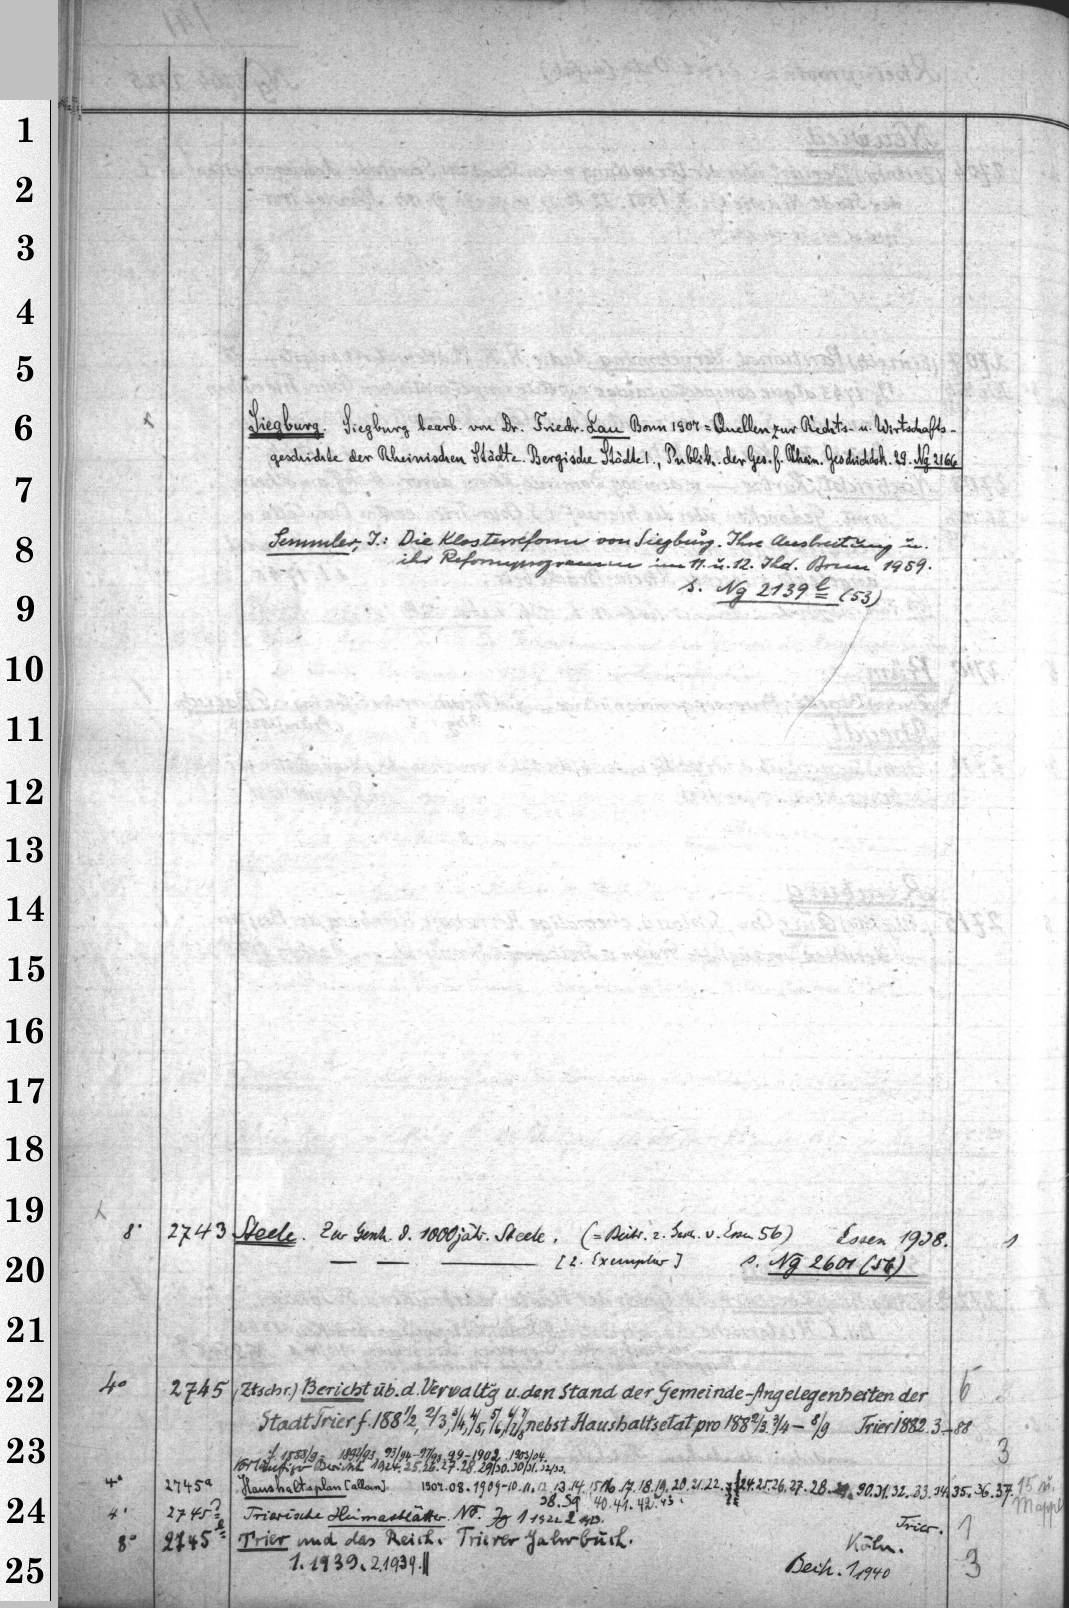 1
2
3
4
5
6
Siegburg. Siegburg bearb. von Dr. Friedr. Lau Bonn 1907 = Quellen zur Rechts- u. Wirtschafts-
geschichte der Rheinischen Städte. Bergische Städte I., Publik. der Ges. f. Rhein. Geschichtsk. 29. Ng 2166
7
8
Semmler, J.: Die Klosterreform von Siegburg. Ihre Ausbreitung u.
ihr Reformprogramm im 11. u. 12. Jhd. Bonn 1959.
s. Ng 2139 l (53)
9
10
11
12
13
14
15
16
17
18
19
8° 2743 Steele. Zur Gesch. d. 1000jähr. Steele. (= Beitr. z. Gesch. v. Essen 56) Essen 1938. 1
20
[2. Exemplar] s. Ng 2601 (56)
21
22
4° 2745 (Ztschr.) Bericht üb. d. Verwalt'g u. den Stand der Gemeinde-Angelegenheiten der 6
Stadt Trier f. 188 1/2, 2/3, 3/4, 4/5, 5/6, nebst Haushaltsetat pro 188 2/3. 3/4 - 8/9 Trier 1882. 3-88
23
f. 1888/9 - 1892/93, 93/94-97/98 99-1902 1903/04. 3
Bericht 1924.25.26.27.28.29/30.30/31.32/33.
4° 2745a Haushaltsplan [allem]. 1907.08.1909-10.11.12.13.14.15/16.17.18.19.20.21.22. 24.25.26.27.28. 30.31.32.33.34.35.36.37. 15 in Mappe
38.39 40.41.42.43.
24
4° 2745 Trierische Heimatblätter. Jg 1 1922 2 1923. Trier. 1
8° 2745 Trier und das Reich. Trierer Jahrbuch. Köln.
25
1.1939.2.1939. Beih. 1 1940 3